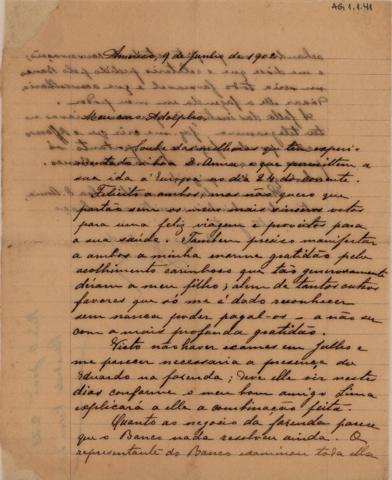 AG 1.1.41
9 de Junho de 1902
Meu caro Adolpho.
Soube das melhoras que tem experi-
mentado a boa D. Anna, e que permittem a
sua ida á Europa no dia 24 do corrente.
Felicito a ambos, mas não quero que
partão sem os meus mais sinceros votos
para uma feliz viagem e proveitos para
a sua saúde. Tambem preciso manifestar
a ambos a minha enorme gratidão pelo
acolhimento carinhoso que tão generosamente
déram a meu filho; alem de tantos outros
favores que só me é dado reconhecer
sem nunca poder pagal-os — a não ser
com a mais profunda gratidão.
Visto não haver exames em Julho e
me parecer necessaria a presença do
Eduardo na fazenda; deve elle vir nestes
dias conforme o meu bom amigo Lima
explicará a elle a combinação feita.
Quanto ao negocio da fazenda parece
que o Banco nada resolveu ainda. O
representante do Banco examinou toda ella